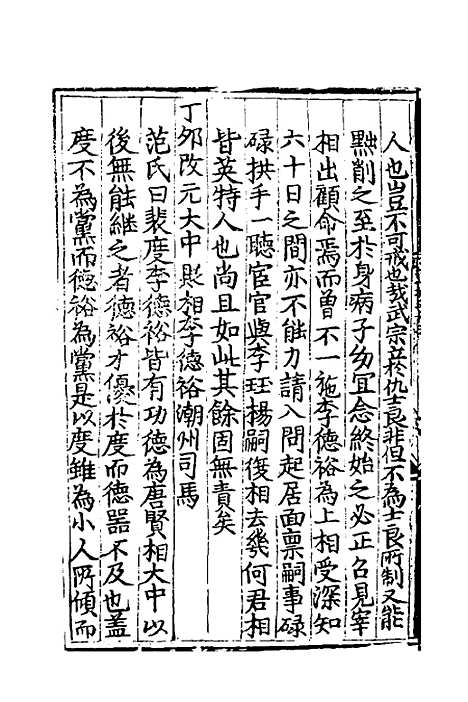 人也豈不可戒也哉武宗立於仇士良非但不為士良所制又能
黜削之至於身病子幼宜念終始之必正召見宰
相出顧命焉而曽不一施李德裕為上相受深知
六十日之間亦不能力請入問起居面禀嗣事碌
碌拱手一聽宦官與李珏楊嗣復相去幾何君相
皆英特人也尚且如此其餘固無責矣
丁夘改元大中貶相李德裕潮州司馬
范氏曰裴度李德裕皆有功德為唐賢相大中以
後無能継之者德裕才優於度而德器不及也盖
度不為黨而德裕為黨是以度雖為小人所傾而